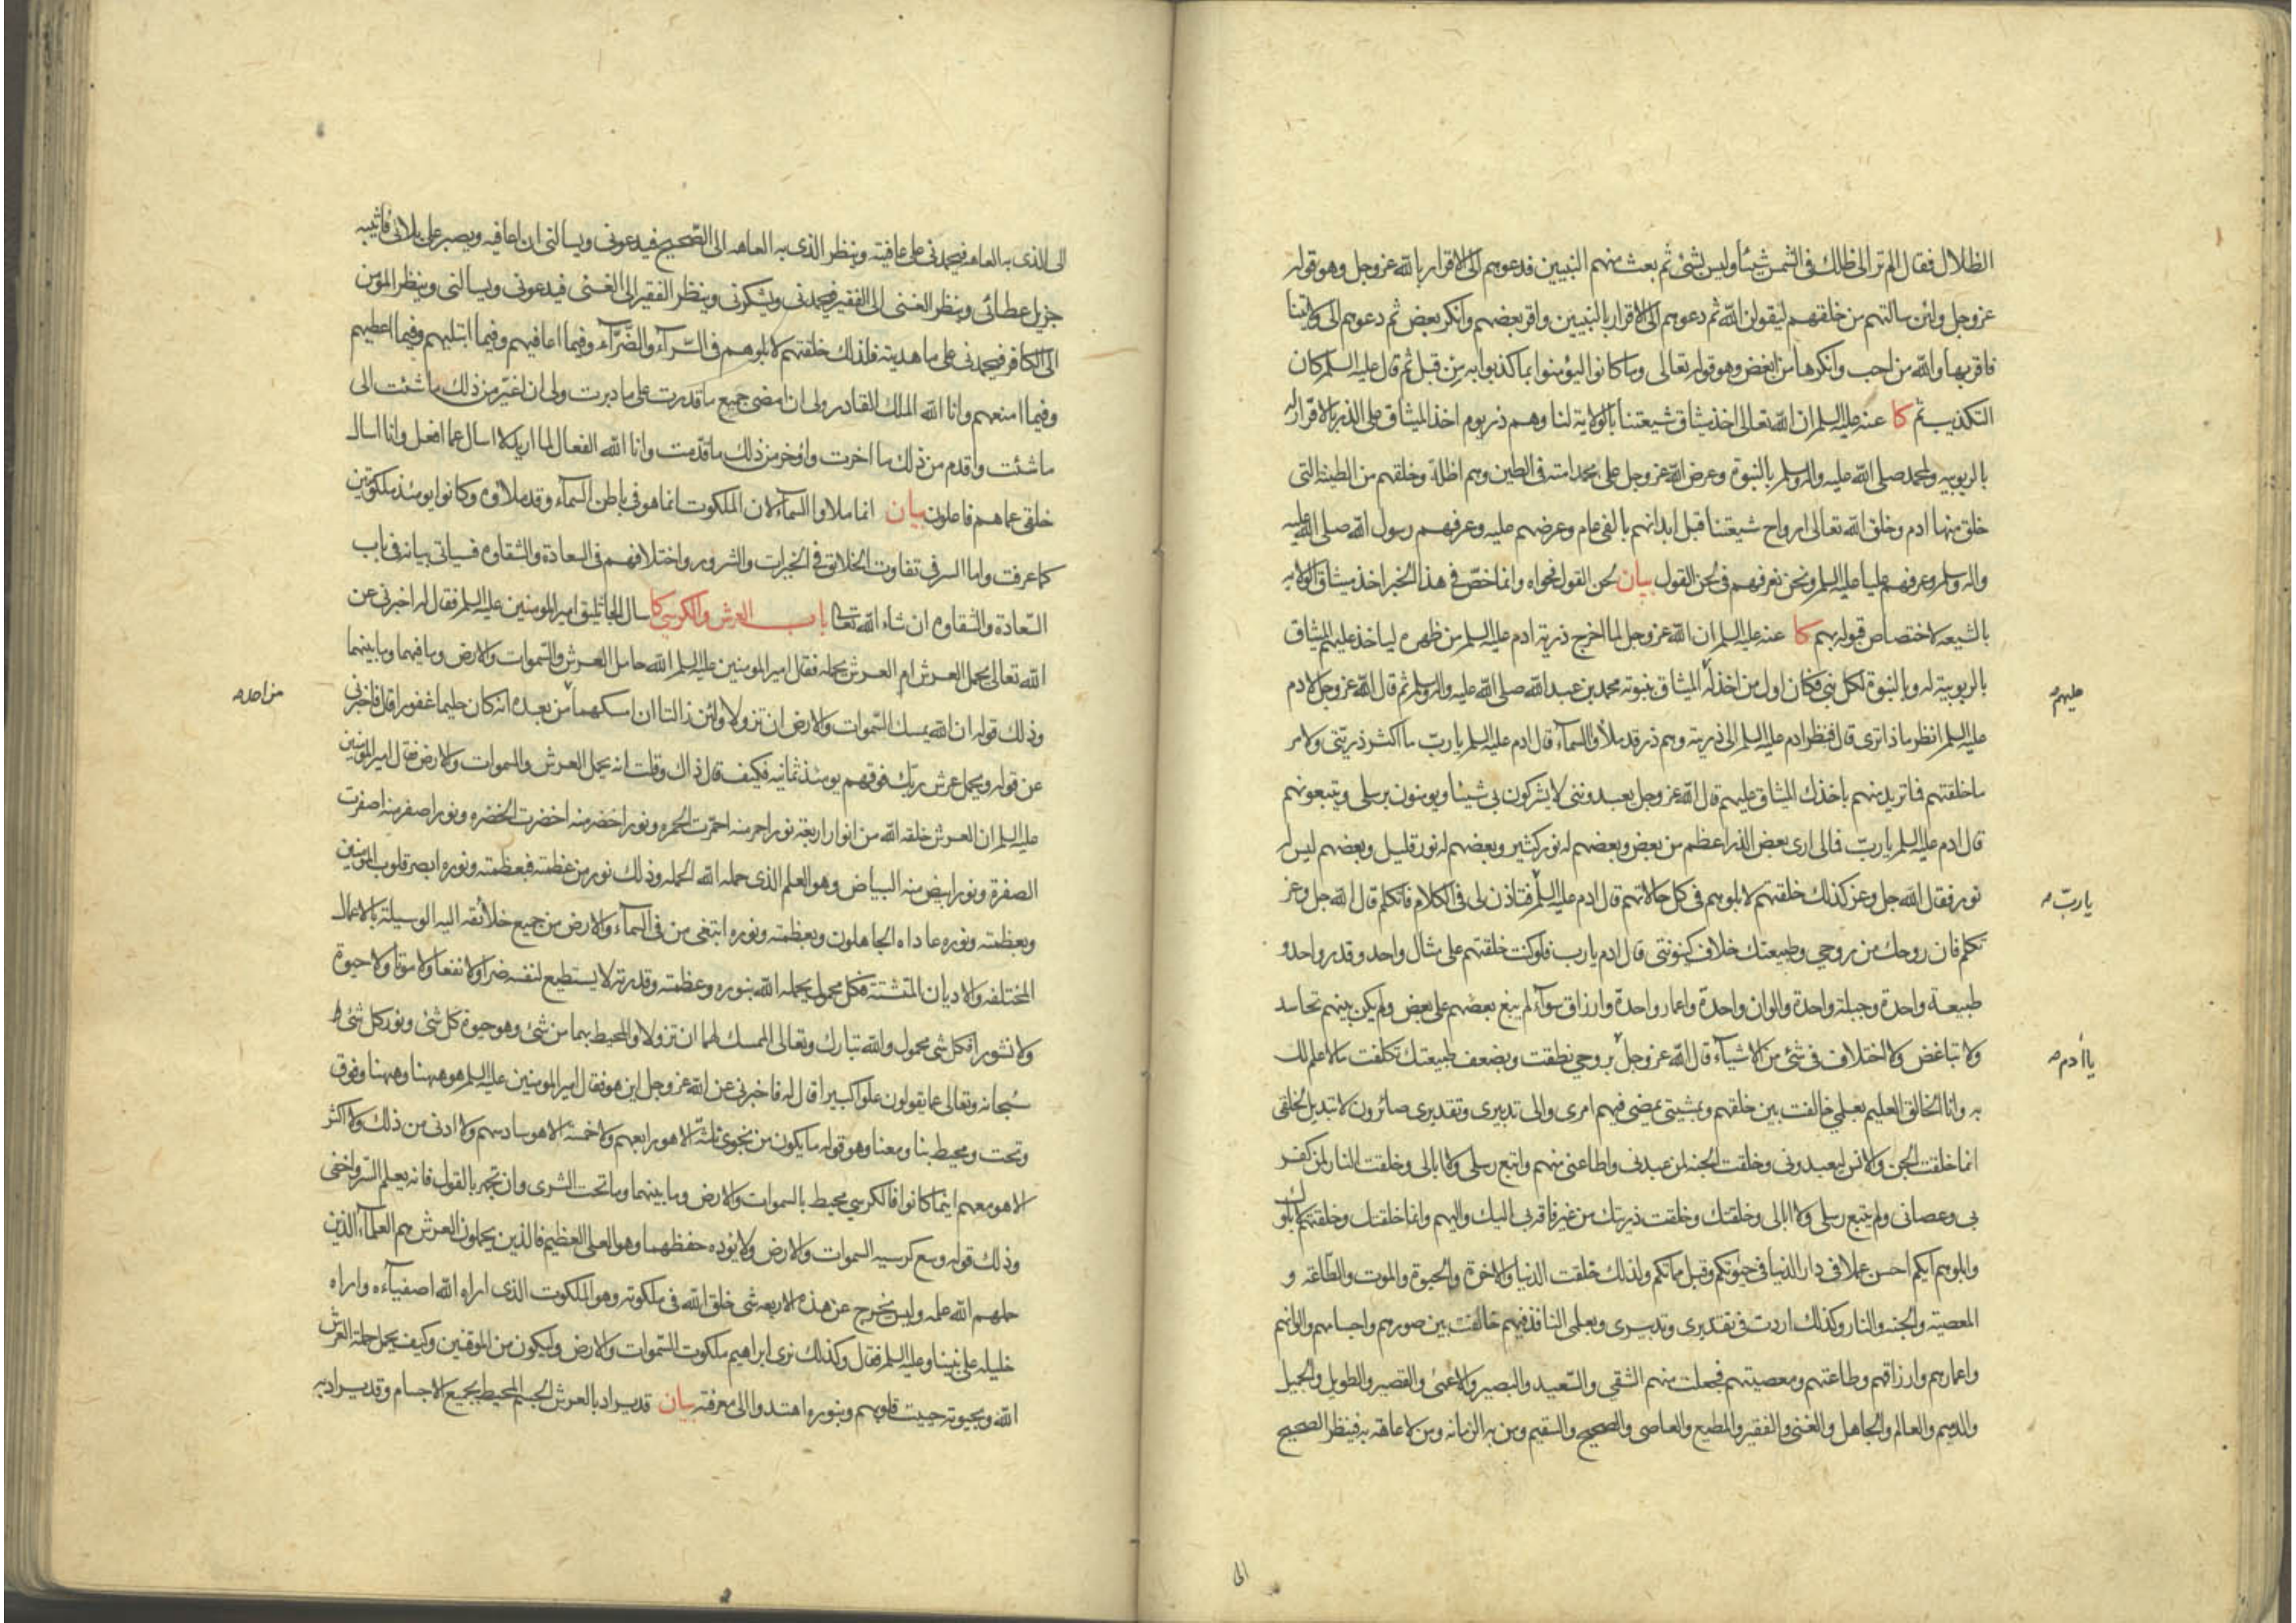 الظلال فقال الم تر الى ظلك فى الشمس شيئاً وليس بشئ ثم بعث منهم النبيين فدعوهم الى الاقرار بالله عز وجل وهو قوله
عز وجل ولئن سالتهم من خلقهم ليقولن الله ثم دعوهم الى الاقرار بالنبيين واقر بعضهم وانكر بعض ثم دعوهم الى ولايتنا
فاقر بها والله من احب وانكرها من ابغض وهو قوله تعالى وما كانوا ليؤمنوا بما كذبوا به من قبل ثم قال عليه السلم كان
التكذيب ثم كا عنه عليه السلم ان الله تعالى اخذ ميثاق شيعتنا بالولاية لنا وهم ذر يوم اخذ الميثاق على الذر بالاقرار له
بالربوبيه ولمحمد صلى الله عليه واله وسلم بالنبوة وعرض الله عز وجل على محمد امته فى الطين وهم اظلة وخلقهم من الطينة التى
خلق منها ادم وخلق الله تعالى ارواح شيعتنا قبل ابدانهم بالفى عام وعرضهم عليه وعرفهم رسول الله صلى الله عليه
واله وسلم وعرفهم عليا عليه السلم ونحن نعرفهم فى لحن القول بيان لحن القول فحواه وانما خصّ فى هذا الخبر اخذ ميثاق الولايه
بالشيعه لاختصاص قبوله بهم كا عنه عليه السلم ان الله عز وجل لما اخرج ذرية ادم عليه السلم من ظهره لياخذ عليهم الميثاق
بالربوبية له وبالنبوة لكل نبى فكان اول من اخذ له الميثاق بنبوته محمد بن عبد الله صلى الله عليه واله وسلم ثم قال الله عز وجل لادم
عليهم
عليه السلم انظر ماذا ترى قال فنظر ادم عليه السلم الى ذريته وهم ذر قد ملأوا السماء قال ادم عليه السلم يا ربّ ما اكثر ذريتى ولامر
ما خلقتهم فما تريد منهم باخذك الميثاق عليهم قال الله عز وجل يعبدوننى لا يشركون بى شيئا ويومنون برسلى ويتبعونهم
قال ادم عليه السلم يا ربّ فمالى ارى بعض الذر اعظم من بعض وبعضهم له نور كثير وبعضهم له نور قليل وبعضهم ليس له
نور فقال الله جل وعز كذلك خلقتهم لابلوهم فى كل حالاتهم قال ادم عليه السلم فتاذن لى فى الكلام فاتكلم قال الله جل وعز
يا ربّ
تكلم فان روحك من روحى وطبيعتك خلاف كينونتى قال ادم يا رب فلو كنت خلقتهم على مثال واحد وقدر واحد و
طبيعة واحدة وجبلة واحدة والوان واحدة واعمار واحدة وارزاق سوآء لم يبغ بعضهم على بعض ولم يكن بينهم تحاسد
ولا تباغض ولا اختلاف فى شئ من الاشيآء قال الله عز وجل بروحى نطقت وبضعف طبيعتك تكلفت مالا علم لك
يا ادم
به وانا الخالق العليم بعلمى خالفت بين خلقهم وبمشيتى يمضى فيهم امرى والى تدبيرى وتقديرى صائرون لا تبديل لخلقى
انما خلقت الجن والانس ليعبدونى وخلقت الجنه لمن عبدنى واطاعنى منهم واتبع رسلى ولا ابالى وخلقت النار لمن كفر
بى وعصانى ولم يتبع رسلى ولا ابالى وخلقتك وخلقت ذريتك من غير فاقة بى اليك واليهم وانما خلقتك وخلقتهم لابلوك
وابلوهم ايكم احسن عملا فى دار الدنيا فى حيوتكم وقبل مماتكم ولذلك خلقت الدنيا والاخرة والحيوة والموت والطاعة و
المعصية والجنه والنار وكذلك اردت فى تقديرى وتدبيرى وبعلمى النافذ فيهم خالفت بين صورهم واجسامهم والوانهم
واعمارهم وارزاقهم وطاعتهم ومعصيتهم فجعلت منهم الشقى والسعيد والبصير والاعمى والقصير والطويل والجميل
والدميم والعالم والجاهل والغنى والفقير والمطيع والعاصى والصحيح والسقيم ومن به الزمانه ومن لا عاهة به فينظر الصحيح
الى
الى الذى به العاهه فيحمدنى على عافيته وينظر الذى به العاهه الى الصحيح فيدعونى ويسالنى ان اعافيه ويصبر على بلائى فاثيبه
جزيل عطائى وينظر الغنى الى الفقير فيحمدنى ويشكرنى وينظر الفقير الى الغنى فيدعونى ويسالنى وينظر المومن
الى الكافر فيحمدنى على ما هديته فلذلك خلقتهم لابلوهم فى السّرآء والضّرّآء وفيما اعافيهم وفيما ابتليهم وفيما اعطيهم
وفيما امنعهم وانا الله الملك القادر ولى ان امضى جميع ما قدرت على ما دبرت ولى ان اغيّر من ذلك ما شئت الى
ما شئت واقدم من ذلك ما اخرت واؤخر من ذلك ما قدّمت وانا الله الفعال لما اريد لا اسال عما افعل وانا اسال
خلقى عما هم فاعلون بيان انما ملاوا السمآء لان الملكوت انما هو فى باطن السمآء وقد ملاوه وكانوا يومئذ ملكوتين
كما عرفت واما السر فى تفاوت الخلائق فى الخيرات والشرور واختلافهم فى السعادة والشقاوه فسياتى بيانه فى باب
السّعادة والشقاوه ان شاء الله تعالى باب العرش والكرسى كا سال الجاثليق امير المومنين عليه السلم فقال له اخبرنى عن
الله تعالى يحمل العرش ام العرش يحمله فقال امير المومنين عليه السلم الله حامل العرش والسّموات والارض وما فيهما وما بينهما
وذلك قوله ان الله يمسك السّموات والارض ان تزولا ولئن زالتا ان امسكهما من بعده انه كان حليما غفورا قال فاخبرنى
من احد
عن قوله ويحمل عرش ربك فوقهم يومئذ ثمانيه فكيف قال ذاك وقلت انه يحمل العرش والسموات والارض فقال امير المومنين
عليه السلم ان العرش خلقه الله من انوار اربعة نور احمر منه احمرّت الحمره ونور اخضر منه اخضرت الخضره ونور اصفر منه اصفرت
الصفرة ونور ابيض منه البياض وهو العلم الذى حمله الله الحمله وذلك نور من عظمته فبعظمته ونوره ابصر قلوب المومنين
وبعظمته ونوره عاداه الجاهلون وبعظمته ونوره ابتغى من فى السمآء والارض من جميع خلائقه اليه الوسيلة بالاعمال
المختلفه والاديان المتشتتة فكل محمول يحمله الله بنوره وعظمته وقدرته لا يستطيع لنفسه ضرا ولا نفعا ولا موتا ولا حيوة
ولا نشورا فكل شى محمول والله تبارك وتعالى الممسك لهما ان تزولا والمحيط بهما من شئ وهو حيوة كل شئ ونور كل شئ
سبحانه وتعالى عما يقولون علوا كبيرا قال له فاخبرنى عن الله عز وجل اين هو فقال امير المومنين عليه السلم هو ههنا وههنا وفوق
وتحت ومحيط بنا ومعنا وهو قوله ما يكون من نجوى ثلثة الا هو رابعهم ولا خمسة الا هو سادسهم ولا ادنى من ذلك ولا اكثر
الا هو معهم اينما كانوا فالكرسى محيط بالسموات والارض وما بينهما وما تحت الثرى وان تجهر بالقول فانه يعلم السّر واخفى
وذلك قوله وسع كرسيه السموات والارض ولا يؤده حفظهما وهو العلى العظيم فالذين يحملون العرش هم العلمآء الذين
حملهم الله علمه وليس يخرج عن هذه الاربعه شى خلق الله فى ملكوته وهو الملكوت الذى اراه الله اصفيآءه واراه
خليله على نبينا وعليه السلم فقال وكذلك نرى ابراهيم ملكوت السّموات والارض وليكون من الموقنين وكيف يحمل حملة العرش
الله وبحيوته حييت قلوبهم وبنوره اهتدوا الى معرفته بيان قد يراد بالعرش الجسم المحيط بجميع الاجسام وقد يراد به